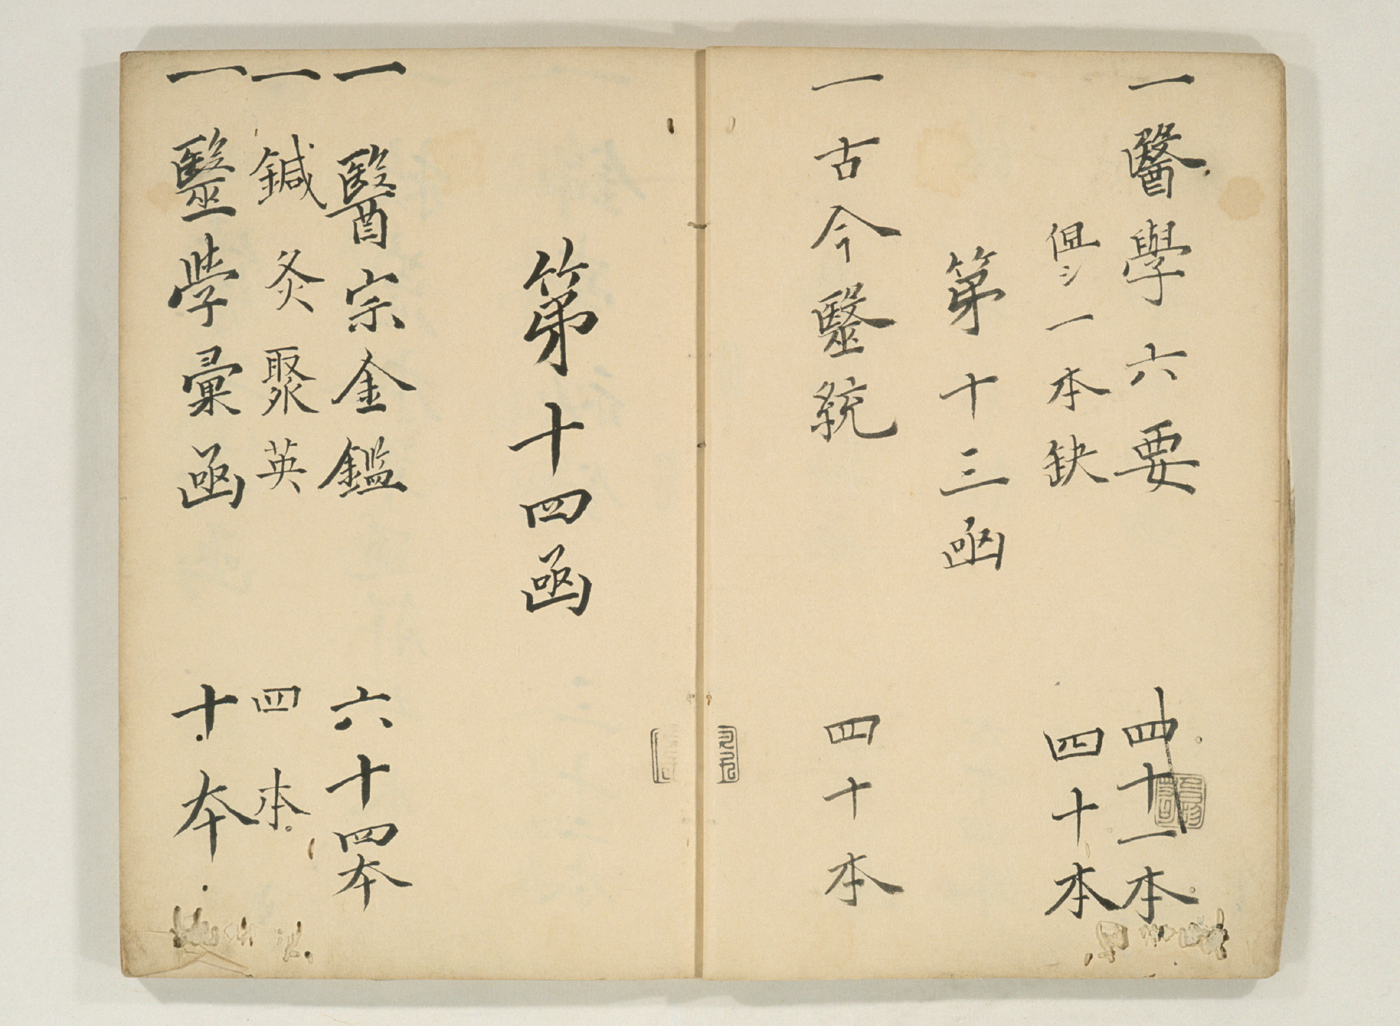 一 醫學六要 四十一本
但シ一本缺 四十本
第十三函
一 古今毉統 四十本
第十四函
一 醫宗金鑑 六十四本
一 鍼灸聚英 四本
一 毉学彙函 十本